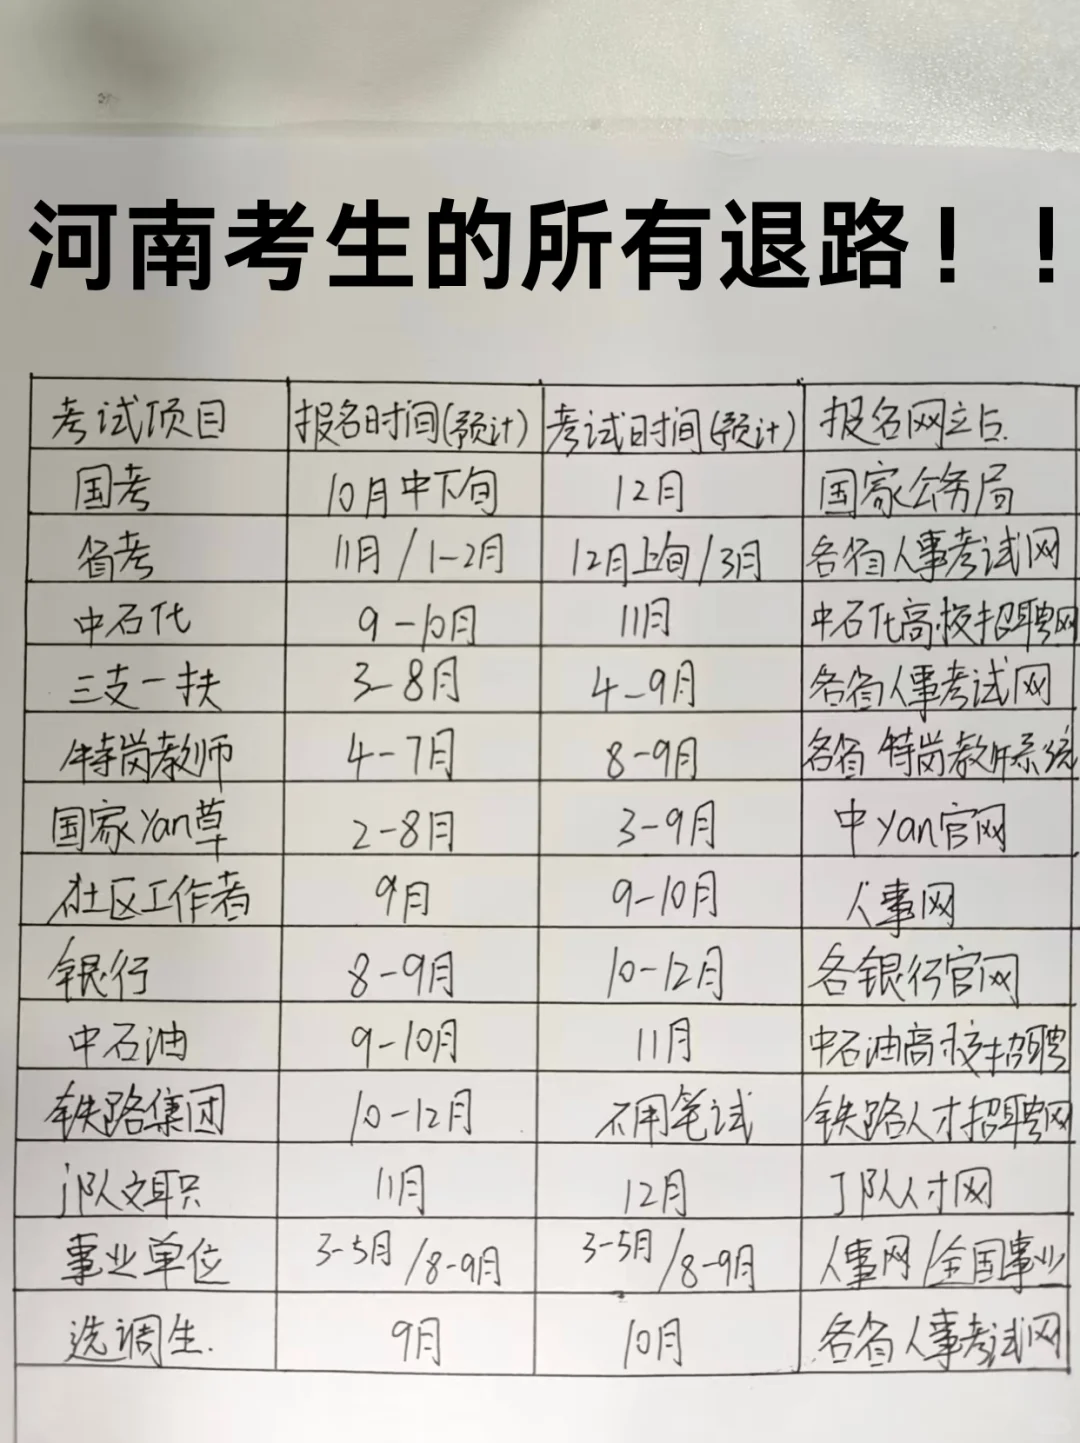 河南考生的所有退路！！
考试项目 报名时间(预计) 考试时间(预计) 报名网站
国考 10月中下旬 12月 国家公务局
省考 11月/1-2月 12月上旬/3月 各省人事考试网
中石化 9-10月 11月 中石化高校招聘网
三支一扶 3-8月 4-9月 各省人事考试网
特岗教师 4-7月 8-9月 各省特岗教师系统
国家yan草 2-8月 3-9月 中yan官网
社区工作者 9月 9-10月 人事网
银行 8-9月 10-12月 各银行官网
中石油 9-10月 11月 中石油高校招聘
铁路集团 10-12月 不用笔试 铁路人才招聘网
j队文职 11月 12月 J队人才网
事业单位 3-5月/8-9月 3-5月/8-9月 人事网/全国事业
选调生. 9月 10月 各省人事考试网